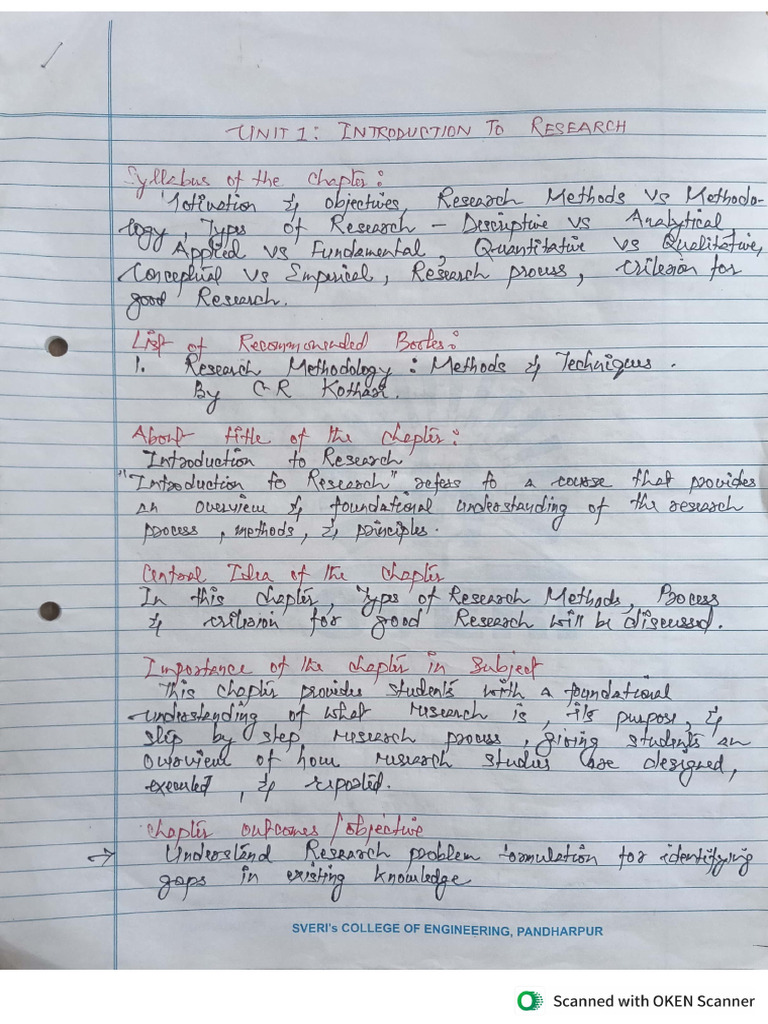 UNIT 1: INTRODUCTION TO RESEARCH
Syllabus of the chapter:
Motivation & objectives, Research Methods vs Methodo-
logy, Types of Research – Descriptive vs Analytical
Applied vs Fundamental, Quantitative vs Qualitative,
Conceptual vs Emperical, Research process, Criterion for
good Research.
List of Recommonended Books:
1. Research Methodology: Methods & Techniques.
By C R Kothari.
About title of the chapter:
Introduction to Research
"Introduction to Research" refers to a course that provides
an overview & foundational understanding of the research
process, methods, & principles.
Central Idea of the chapter
In this chapter, Types of Research Methods, Process
& criterion for good Research will be discussed.
Importance of the chapter in Subject
This chapter provides students with a foundational
understanding of what research is, its purpose, &
step by step research process, giving students an
overview of how research studies are designed,
executed, & reported.
Chapter outcomes/objective
→ Understand Research problem formulation for identifying
gaps in existing knowledge
SVERI's COLLEGE OF ENGINEERING, PANDHARPUR
Scanned with OKEN Scanner